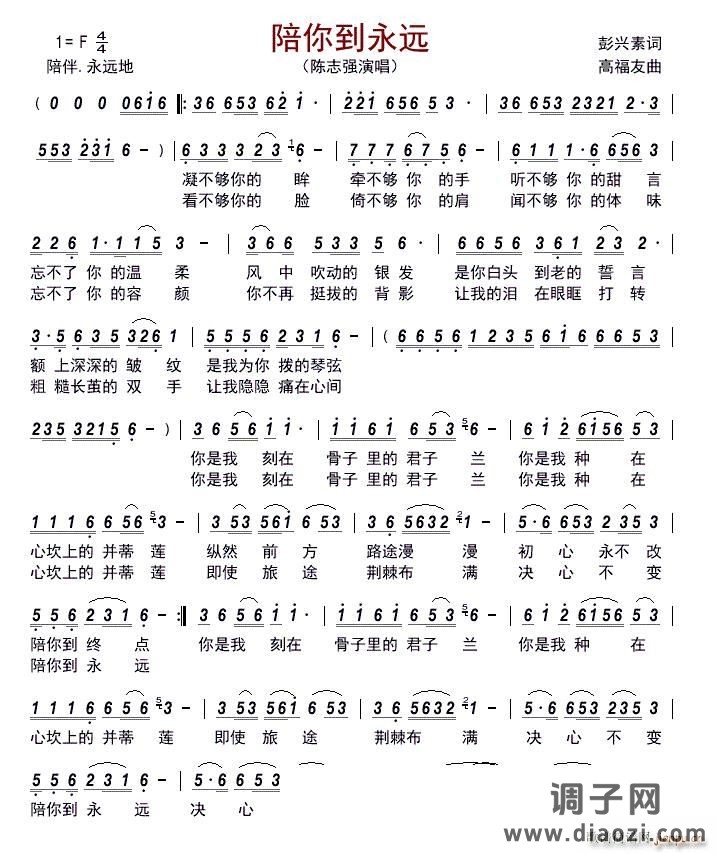 陪你到永远
1= F 4/4
彭兴素词
陪伴.永远地
（陈志强演唱）
高福友曲
( 0 0 0 0616 ‖: 36 653 621· | 2·21 656 53 - | 36 653 2321 2·3 |
553 2316 - ) | 6333 323 16 - | 777 67 56 - | 611 1·6 656 3 |
凝不够你的 眸 牵不够 你 的手 听不够 你 的甜 言
看不够你的 脸 倚不够 你 的肩 闻不够 你 的体 味
226 1·115 3 - | 366 533 5 5 - | 2656 361 23 - |
忘不了 你 的温 柔 风 中 吹动的 银 发 是你白头 到老的 誓 言
忘不了 你 的容 颜 你不再 挺拔的 背 影 让我的泪 在眼眶 打 转
3·5635 326 1 | 5556 221 6 - | (6656 1235 616 6653 |
额 上深深的 皱 纹 是我为你 拨的琴弦
粗 糙长茧的 双 手 让我隐隐 痛在心间
235 3215 6 - ) | 36 56 1 1· | 1161 653 56 - | 612 6156 53 |
你是我 刻在 骨子里的 君子 兰 你是我 种 在
你是我 刻在 骨子里的 君子 兰 你是我 种 在
1116 656 53 - | 353 561 653 | 36 5632 21 - | 5·6 653 235 3 |
心坎上的 并蒂 莲 纵然 前 方 路途漫 漫 初 心 永不 改
心坎上的 并蒂 莲 即使 旅 途 荆棘布 满 决 心 不 变
556 231 6 - :‖ 36 56 1 1· | 1161 653 56 - | 612 6156 53 |
陪你到 终 点 你是我 刻在 骨子里的 君子 兰 你是我 种 在
陪你到 永 远
1116 656 53 - | 353 561 653 | 36 5632 21 - | 5·6 653 235 3 |
心坎上的 并蒂 莲 即使 旅 途 荆棘布 满 决 心 不 变
556 231 6 - | 5·6 653
陪你到 永 远 决 心
调子网
www.diaozi.com